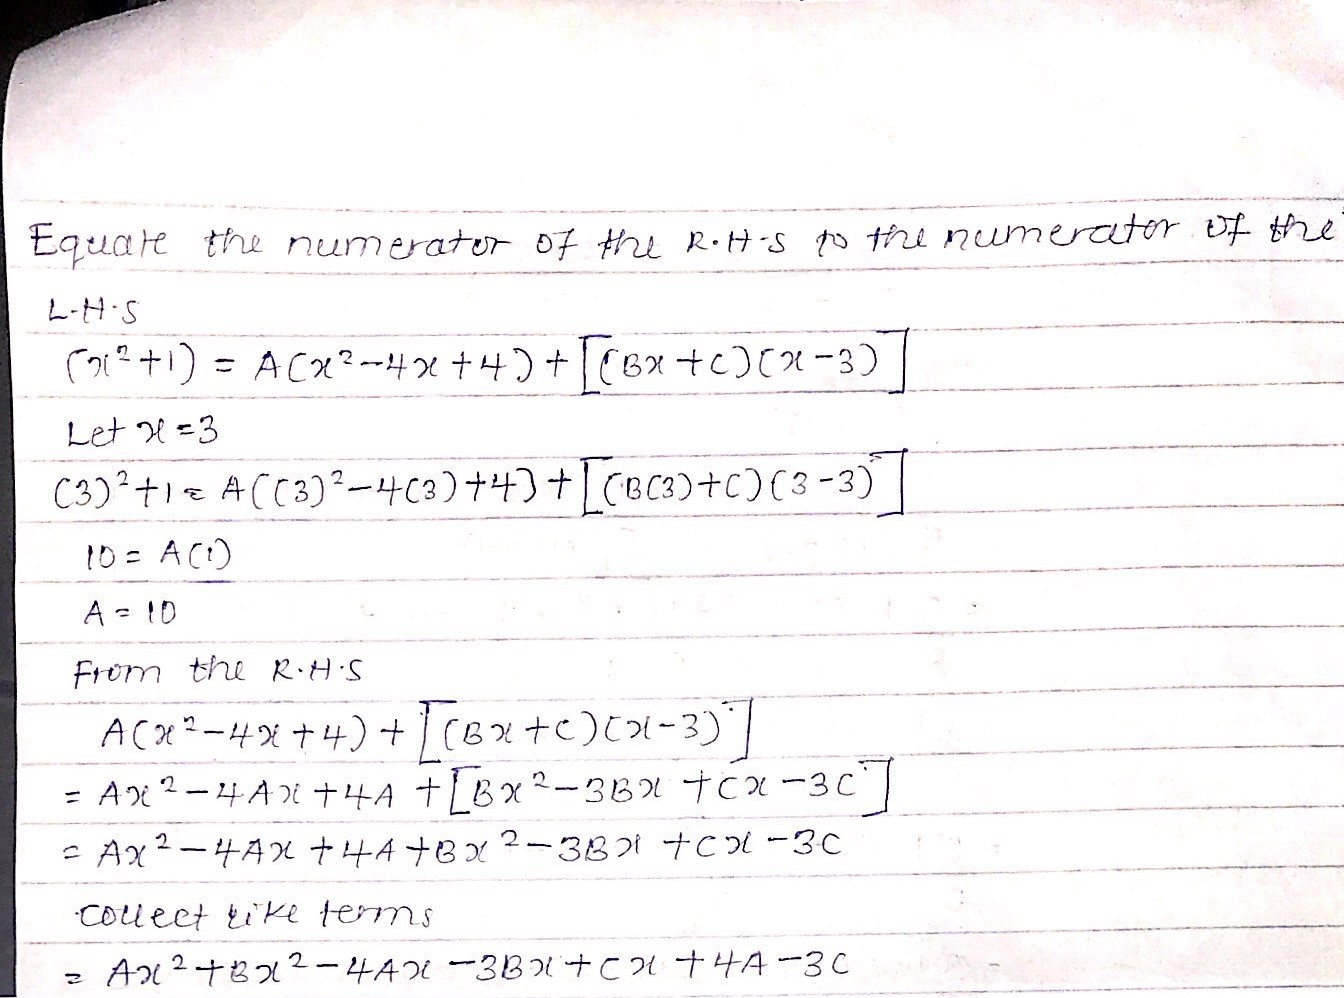 Equate the numerator of the R.H.S to the numerator of the
L.H.S
(x²+1) = A(x²-4x+4)+[(Bx+C)(x-3)]
Let x=3
(3)²+1 = A((3)²-4(3)+4)+[(B(3)+C)(3-3)]
10 = A(1)
A = 10
From the R.H.S
A(x²-4x+4)+[(Bx+C)(x-3)]
= Ax²-4Ax+4A+[Bx²-3Bx+Cx-3C]
= Ax²-4Ax+4A+Bx²-3Bx+Cx-3C
collect like terms
= Ax²+Bx²-4Ax-3Bx+Cx+4A-3C